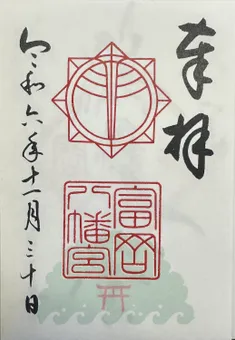 奉拝
富岡
八幡宮
令和六年十一月三十日